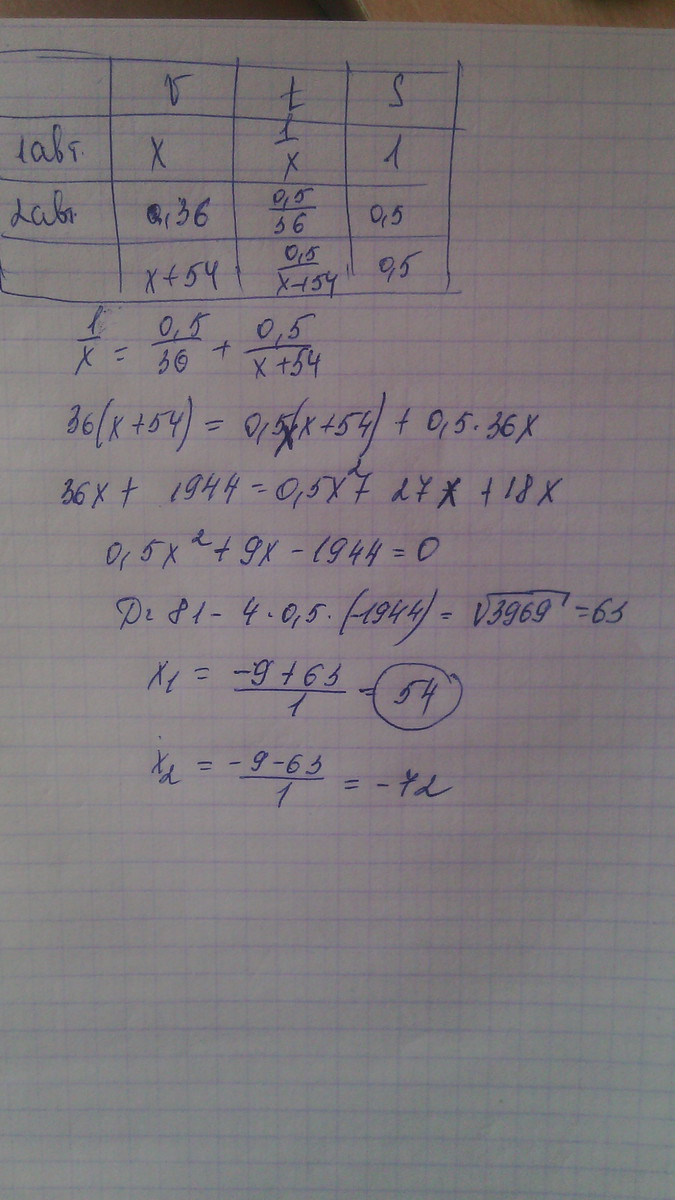 v t S
1авт. x 1/x 1
2авт. 36 0,5/36 0,5
x+54 0,5/x+54 0,5
1/x = 0,5/36 + 0,5/x+54
36(x+54) = 0,5x(x+54) + 0,5·36x
36x + 1944 = 0,5x² + 27x + 18x
0,5x² + 9x - 1944 = 0
D = 81 - 4·0,5·(-1944) = √3969 = 63
x₁ = -9+63/1 = 54
x₂ = -9-63/1 = -72